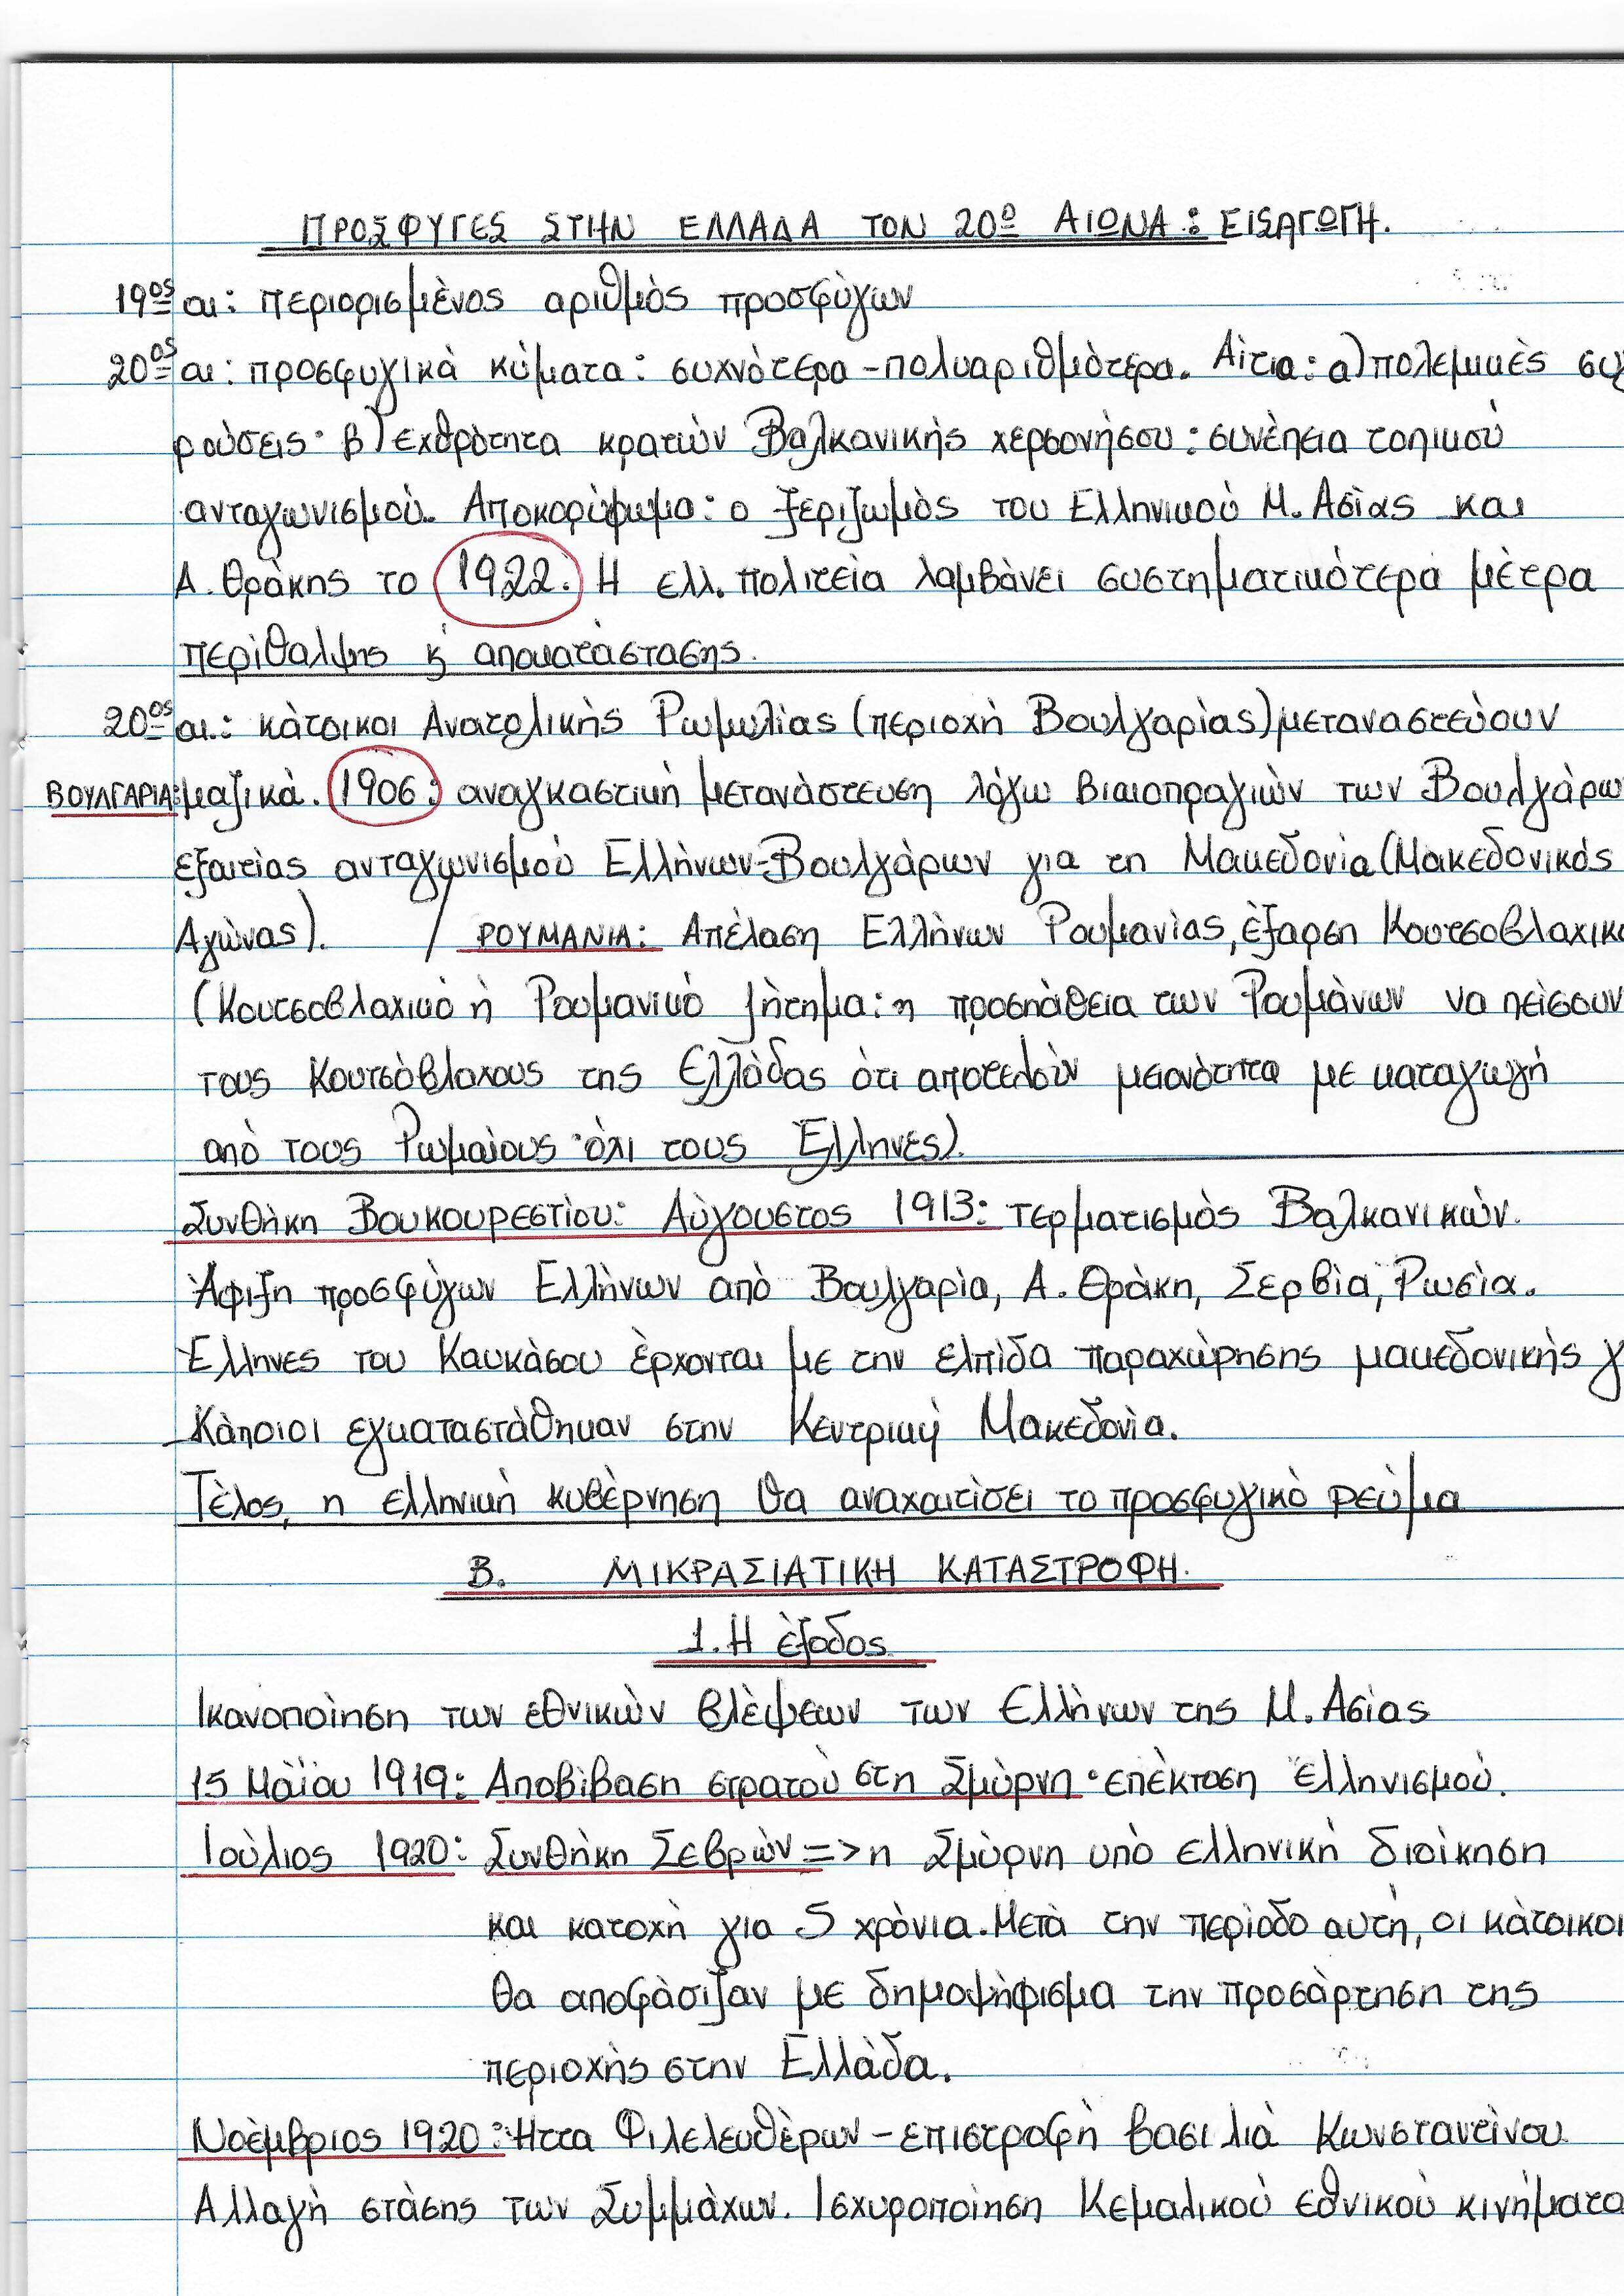 ΠΡΟΣΦΥΓΕΣ ΣΤΗΝ ΕΛΛΑΔΑ ΤΟΝ 20ο ΑΙΩΝΑ: ΕΙΣΑΓΩΓΗ.
19ος αι: περιορισμένος αριθμός προσφύγων
20ος αι: προσφυγικά κύματα: συχνότερα - πολυαριθμότερα. Αίτια: α) πολεμικές συγ
ρούσεις· β) εχθρότητα κρατών Βαλκανικής χερσονήσου: συνέπεια τοπικού
ανταγωνισμού. Αποκορύφωμα: ο ξεριζωμός του Ελληνικού Μ. Ασίας και
Α. Θράκης το 1922. Η ελλ. πολιτεία λαμβάνει συστηματικότερα μέτρα
περίθαλψης κ' αποκατάστασης.
20ος αι.: κάτοικοι Ανατολικής Ρωμυλίας (περιοχή Βουλγαρίας) μεταναστεύουν
ΒΟΥΛΓΑΡΙΑ: μαζικά. 1906: αναγκαστική μετανάστευση λόγω βιαιοπραγιών των Βουλγάρω
εξαιτίας ανταγωνισμού Ελλήνων-Βουλγάρων για τη Μακεδονία (Μακεδονικός
Αγώνας). / ΡΟΥΜΑΝΙΑ: Απέλαση Ελλήνων Ρουμανίας, έξαρση Κουτσοβλαχικο
(Κουτσοβλαχικό ή Ρουμανικό ζήτημα: η προσπάθεια των Ρουμάνων να πείσουν
τους Κουτσόβλαχους της Ελλάδας ότι αποτελούν μειονότητα με καταγωγή
από τους Ρωμαίους· όχι τους Έλληνες).
Συνθήκη Βουκουρεστίου: Αύγουστος 1913: τερματισμός Βαλκανικών.
Άφιξη προσφύγων Ελλήνων από Βουλγαρία, Α. Θράκη, Σερβία, Ρωσία.
Έλληνες του Καυκάσου έρχονται με την ελπίδα παραχώρησης μακεδονικής γ
Κάποιοι εγκαταστάθηκαν στην Κεντρική Μακεδονία.
Τέλος, η ελληνική κυβέρνηση θα αναχαιτίσει το προσφυγικό ρεύμα
Β. ΜΙΚΡΑΣΙΑΤΙΚΗ ΚΑΤΑΣΤΡΟΦΗ.
1. Η έξοδος
Ικανοποίηση των εθνικών βλέψεων των Ελλήνων της Μ. Ασίας
15 Μαΐου 1919: Αποβίβαση στρατού στη Σμύρνη· επέκταση Ελληνισμού.
Ιούλιος 1920: Συνθήκη Σεβρών => η Σμύρνη υπό ελληνική διοίκηση
και κατοχή για 5 χρόνια. Μετά την περίοδο αυτή, οι κάτοικοι
θα αποφάσιζαν με δημοψήφισμα την προσάρτηση της
περιοχής στην Ελλάδα.
Νοέμβριος 1920: Ήττα Φιλελευθέρων - επιστροφή βασιλιά Κωνσταντίνου
Αλλαγή στάσης των Συμμάχων. Ισχυροποίηση Κεμαλικού εθνικού κινήματο